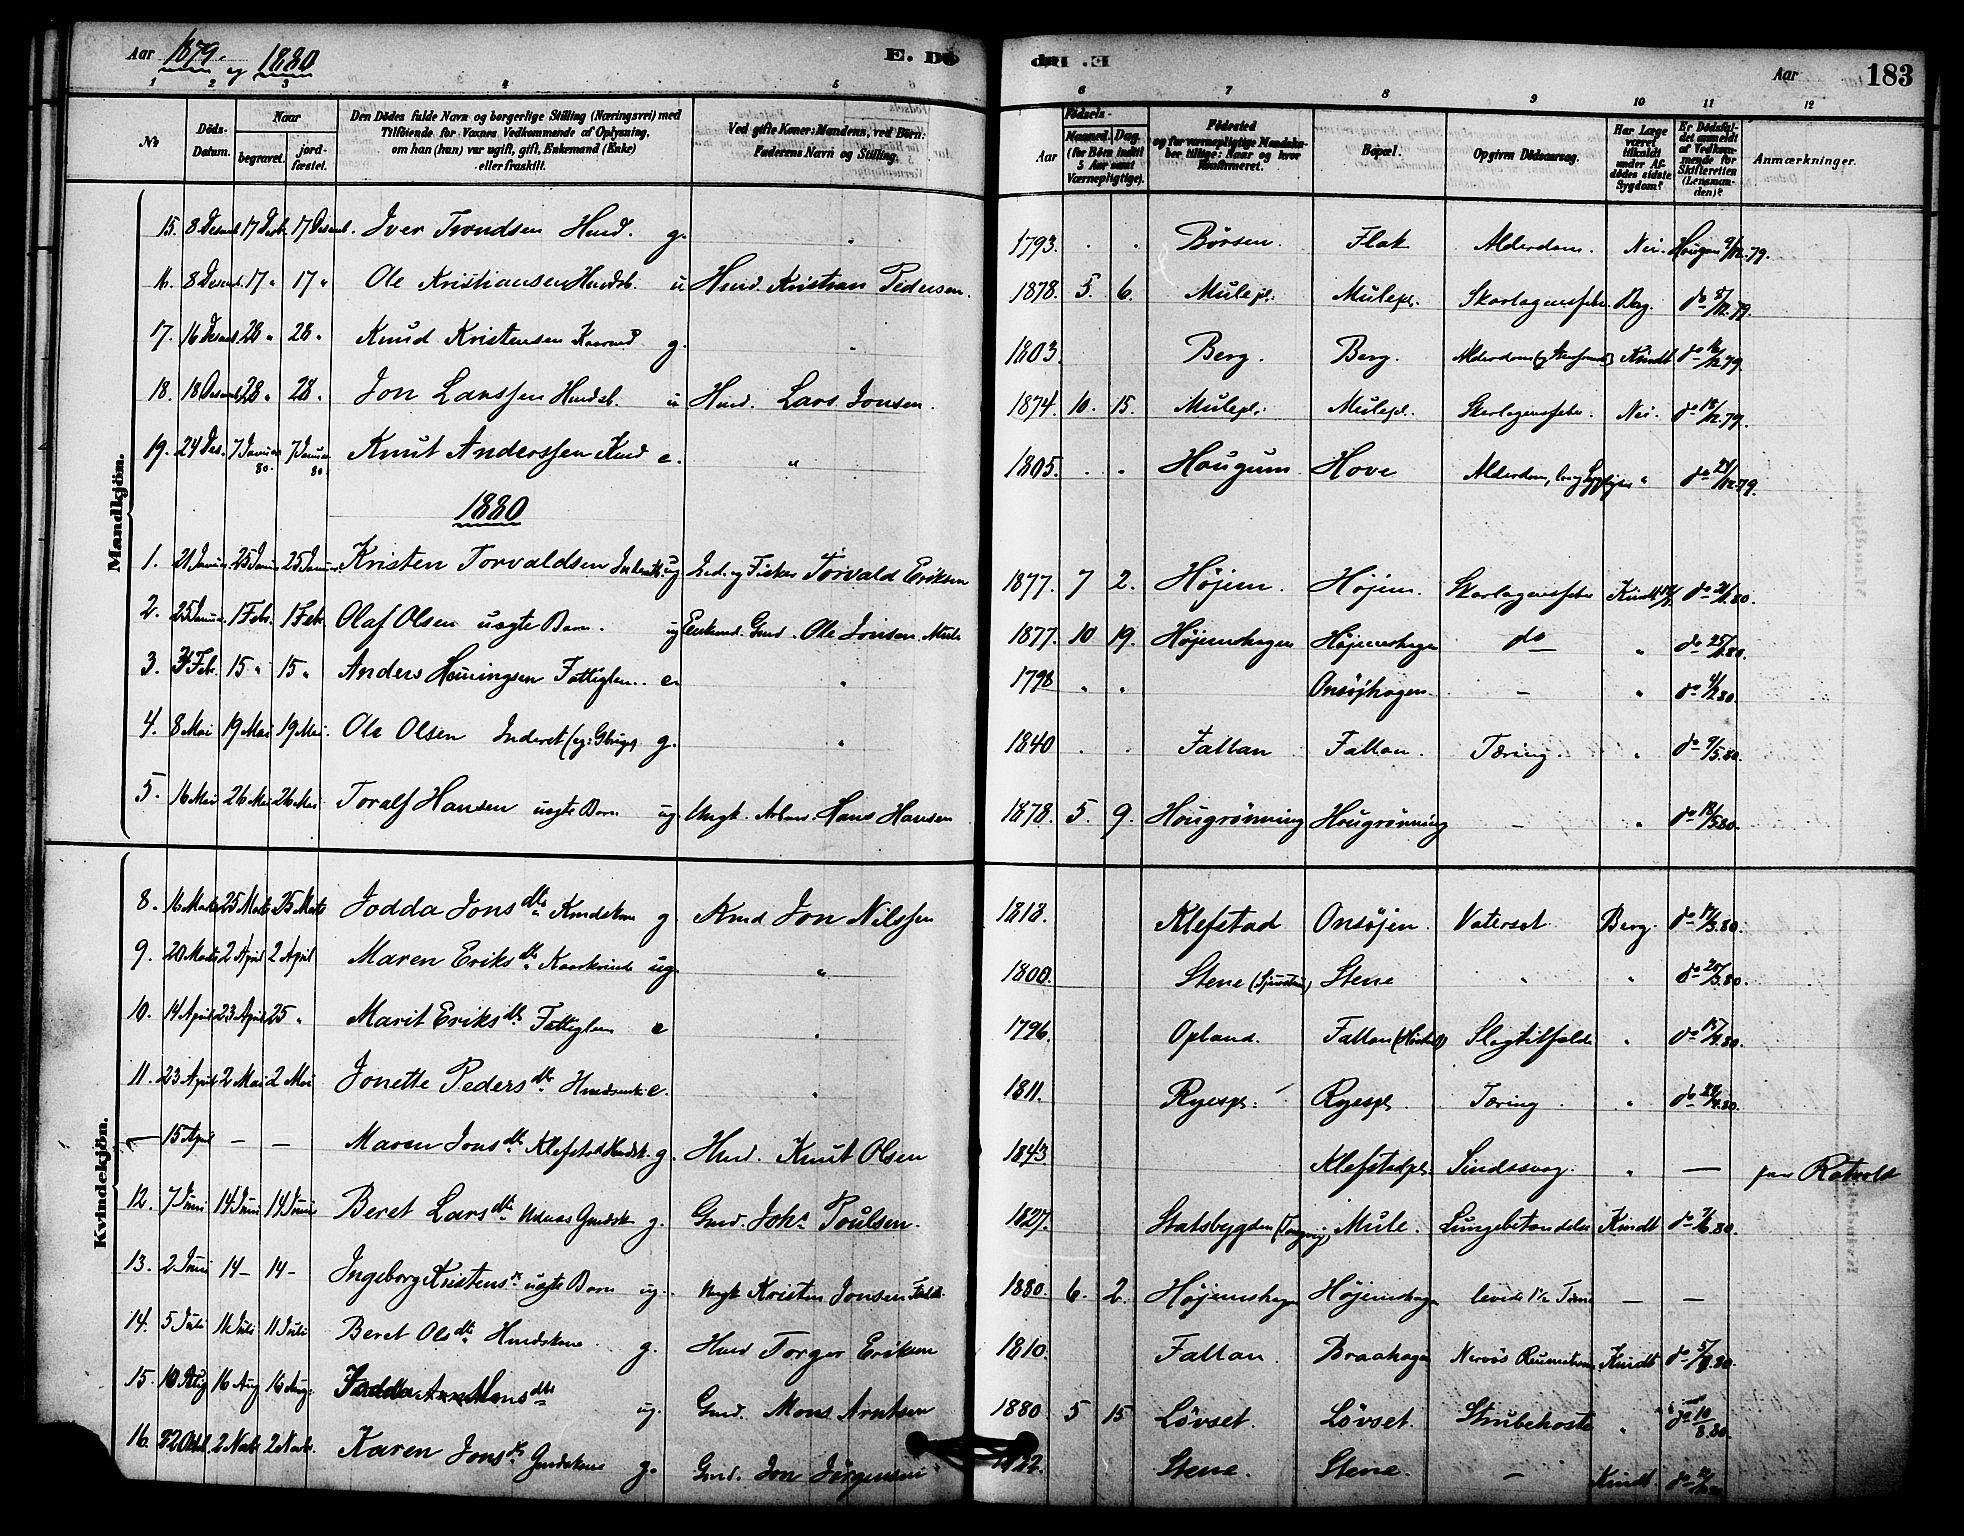 Aar 1879 og 1880 E. Dö
E. Dö Aar 183
1 2 3 4 5 6 7 8 9 10 11 12
No Döds-Datum. Naar begravet. jord-fæstet. Den Dödes fulde Navn og borgerlige Stilling (Næringsvei) med Tilföiende for Voxnes Vedkommende af Oplysning, om han (hun) var ugift, gift, Enkemand (Enke) eller fraskilt. Ved gifte Koner: Mandens, ved Börn: Faderens Navn og Stilling. Födsels- Aar Maaned. Dag. (for Börn indtil 5 Aar samt Værnepligtige). Födested og for værnepligtige Mandskaber tillige: Naar og hvor Konfirmeret. Bopæl. Opgiven Dödsaarsag. Har Læge været tilkaldt under Afdödes sidste Sygdom? Er Dödsfaldet anmeldt af Vedkommende for Skifteretten (Lensmanden)? Anmærkninger.
Mandkjön.
15. 8 Desemb. 17 Desb. 17 Desemb. Iver Trondsen Hmd. g. " 1793. " " Börsen. Flat Alderdom. Nei. Hougan 9/12.79.
16. 8 Desemb. 17 " 17 " Ole Kristiansen Hmdsb. u Hmd. Kristian Pedersen. 1878. 5. 6. Mulepl. Mulepl. Skarlagensfeber Berg. do 8/12.79.
17. 16 Desemb. 28 " 28 " Knud Kristensen Kaarmd g. " 1803. Berg. Berg. Alderdom Kindt do 16/12.79.
18. 18 Desemb. 28 " 28 " Jon Larssen Hmdsb. u Hmd. Lars Jonsen. 1874. 10. 15. Mulepl. Mulepl. Skarlagensfeber. Nei. do 18/12.79.
19. 24 Des. 7 Januar 80. 7 Januar 80. Knut Anderssen Kmd e. " 1805. " " Hougum Hove Alderdom, " do 24/12.79.
1880
1. 21 Januar 25 Januar 25 Januar Kristen Torvaldsen ug Ind. og Fisker Torvald Eriksen 1877. 7 2. Höjem. Höjem. Skarlagensfeber Kindt do 21/1.80.
2. 25 Januar 1 Feb. 1 Feb. Olaf Olsen uægte Barn. ug Enkemd. Gmd. Ole Jonsen Mule 1877. 10 19. Höjemshagen Höjemshagen do " do 25/1.80.
3. Feb. 15 " 15 " Anders Henningsen Fattiglem. e. " 1798 " " Onsöjhagen. — " do 4/2.80.
4. 8 Mai 19 Mai 19 Mai. Ole Olsen Inderst g. " 1840 " " Fallan Fallan. Tæring. " do 9/5.80.
5. 16 Mai 26 Mai 26 Mai Toralf Hansen uægte Barn ug Ungk. Arbm. Hans Hansen 1878. 5. 9. Hougrönning Hougrönning — " do 18/5.80.
Kvindekjön.
8. 16 Marts 25 Marts 25 Marts Jodda Jonsdtr Kmdskone g. Kmd Jon Nilssen 1818. Klefstad Onsöjen. Vatersot. Berg. do 17/3.80.
9. 20 Marts 2 April 2 April Maren Eriksdtr Kaarkvinde ug. " 1800. Stene Stene " " do 20/3.80.
10. 14 April 23 April 25 " Marit Eriksdtr Fattiglem e " 1796. Opland. Fallan Slagtilfælde " do 15/4.80.
11. 23 April 2 Mai 2 Mai Jonette Pedersdtr e. " 1811. Ryespl. Ryespl. Tæring. " do 24/4.80.
— 15 April — — Maren Jonsdtr Klefstad Hmdsk. g. Hmd. Knut Olsen 1843. Klefstadpl. Sindssvag. " — paa Rotvold
12. 7 Juni 14 Juni 14 Juni Beret Larsdtr Gmdsk. g. Gmd. Johs Poulsen. 1827. Stadsbygden Mule. Lungebetændelse Kindt do 7/6.80.
13. 2 Juni 14 — 14 — Ingeborg Kristensdr uægte Barn ug. Ungk Kristen Jonsen 1880. 6. 2. Höjemshagen Höjemshagen levede 1½ Time — —
14. 5 Juli 11 Juli 11 Juli Beret Olsdtr Hmdskone. g. Hmd Torger Eriksen 1810. Fallan. Braahagen Nervös Kindt do 5/7.80.
15. 10 Aug 16 Aug 16 Aug. Monsdtr ug. Gmd. Mons Arntsen 1880 5 15 Lövset. Lövset. Strubehoste " do 10/8.80.
16. 22 Oktob. 2 Novb. 2 Novb. Karen Jonsdtr Gmdskone g. Gmd. Jon Jörgensen Stene. Stene. — Kindt. do